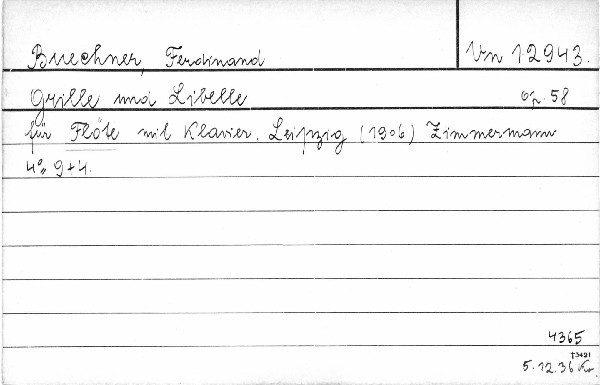 Buechner, Ferdinand Vn 12943.
Grille und Libelle op. 58
für Flöte mit Klavier. Leipzig (1906) Zimmermann
4° 9+4.
4365
T3421
5.12.36